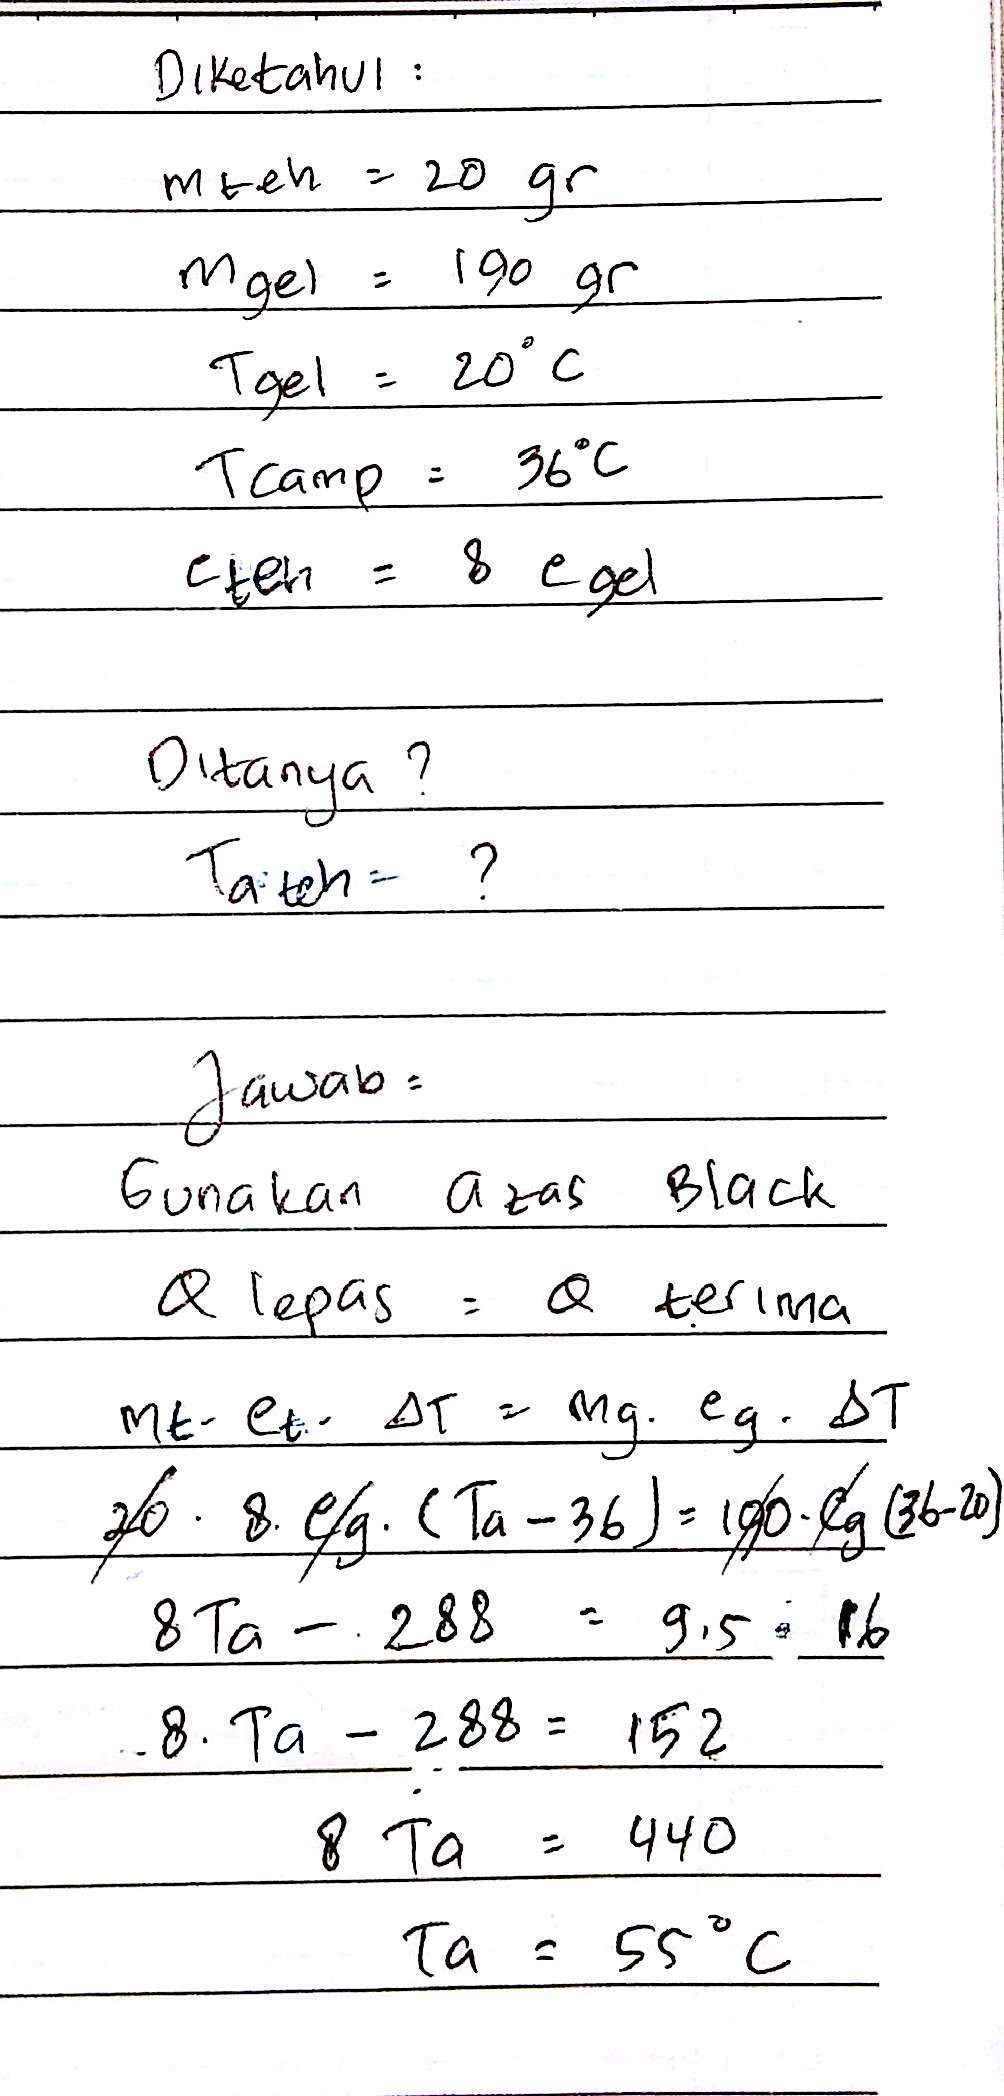 Diketahui :
m teh = 20 gr
m gel = 190 gr
T gel = 20°C
T camp = 36°C
c teh = 8 c gel
Ditanya ?
Ta teh = ?
Jawab =
Gunakan azas Black
Q lepas = Q terima
mt. ct. ΔT = mg. cg. ΔT
20 . 8. cg. (Ta - 36) = 190. cg (36-20)
8 Ta - 288 = 9,5 . 16
8. Ta - 288 = 152
8 Ta = 440
Ta = 55°C